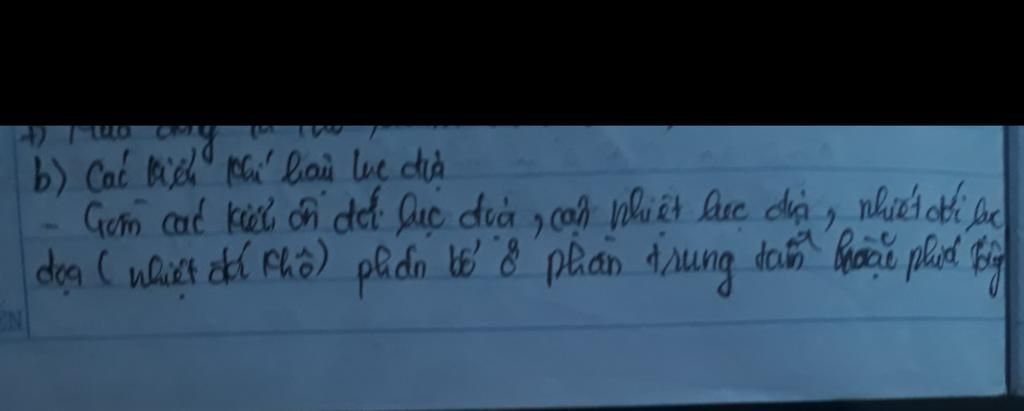 b) Các kiểu khí hậu lục địa
- Gồm các kiểu ôn đới lục địa, cận nhiệt lục địa, nhiệt đới lục
địa (nhiệt đới khô) phân bố ở phần trung tâm hoặc phía Tây